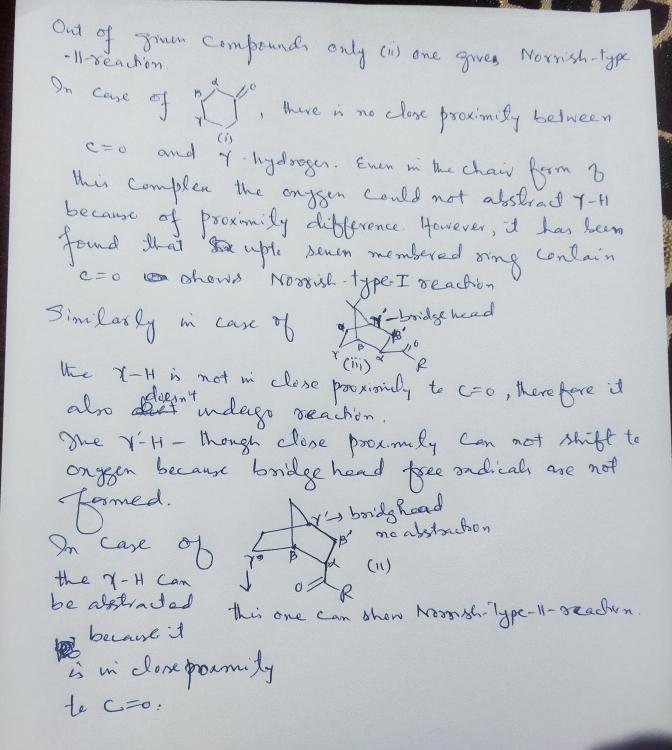 Out of given compounds only (ii) one gives Norrish-type
-II-reaction.
In case of
α
β
γ
O
(i)
, there is no close proximity between
C=O and γ-hydrogen. Even in the chair form of
this complex the oxygen could not abstract γ-H
because of proximity difference. However, it has been
found that upto seven membered ring contain
C=O shows Norrish-type-I reaction
Similarly in case of
γ'-bridgehead
β'
O
γ
β
α
R
(iii)
the γ-H is not in close proximity to C=O, therefore it
also doesn't undergo reaction.
The γ'-H - though close proximity can not shift to
oxygen because bridgehead free radicals are not
formed.
γ'→ bridghead
no abstraction
In case of
γ
β
β'
α
(ii)
O
R
the γ-H can
be abstracted
this one can show Norrish-Type-II-reaction.
because it
is in close proxmity
to C=O.